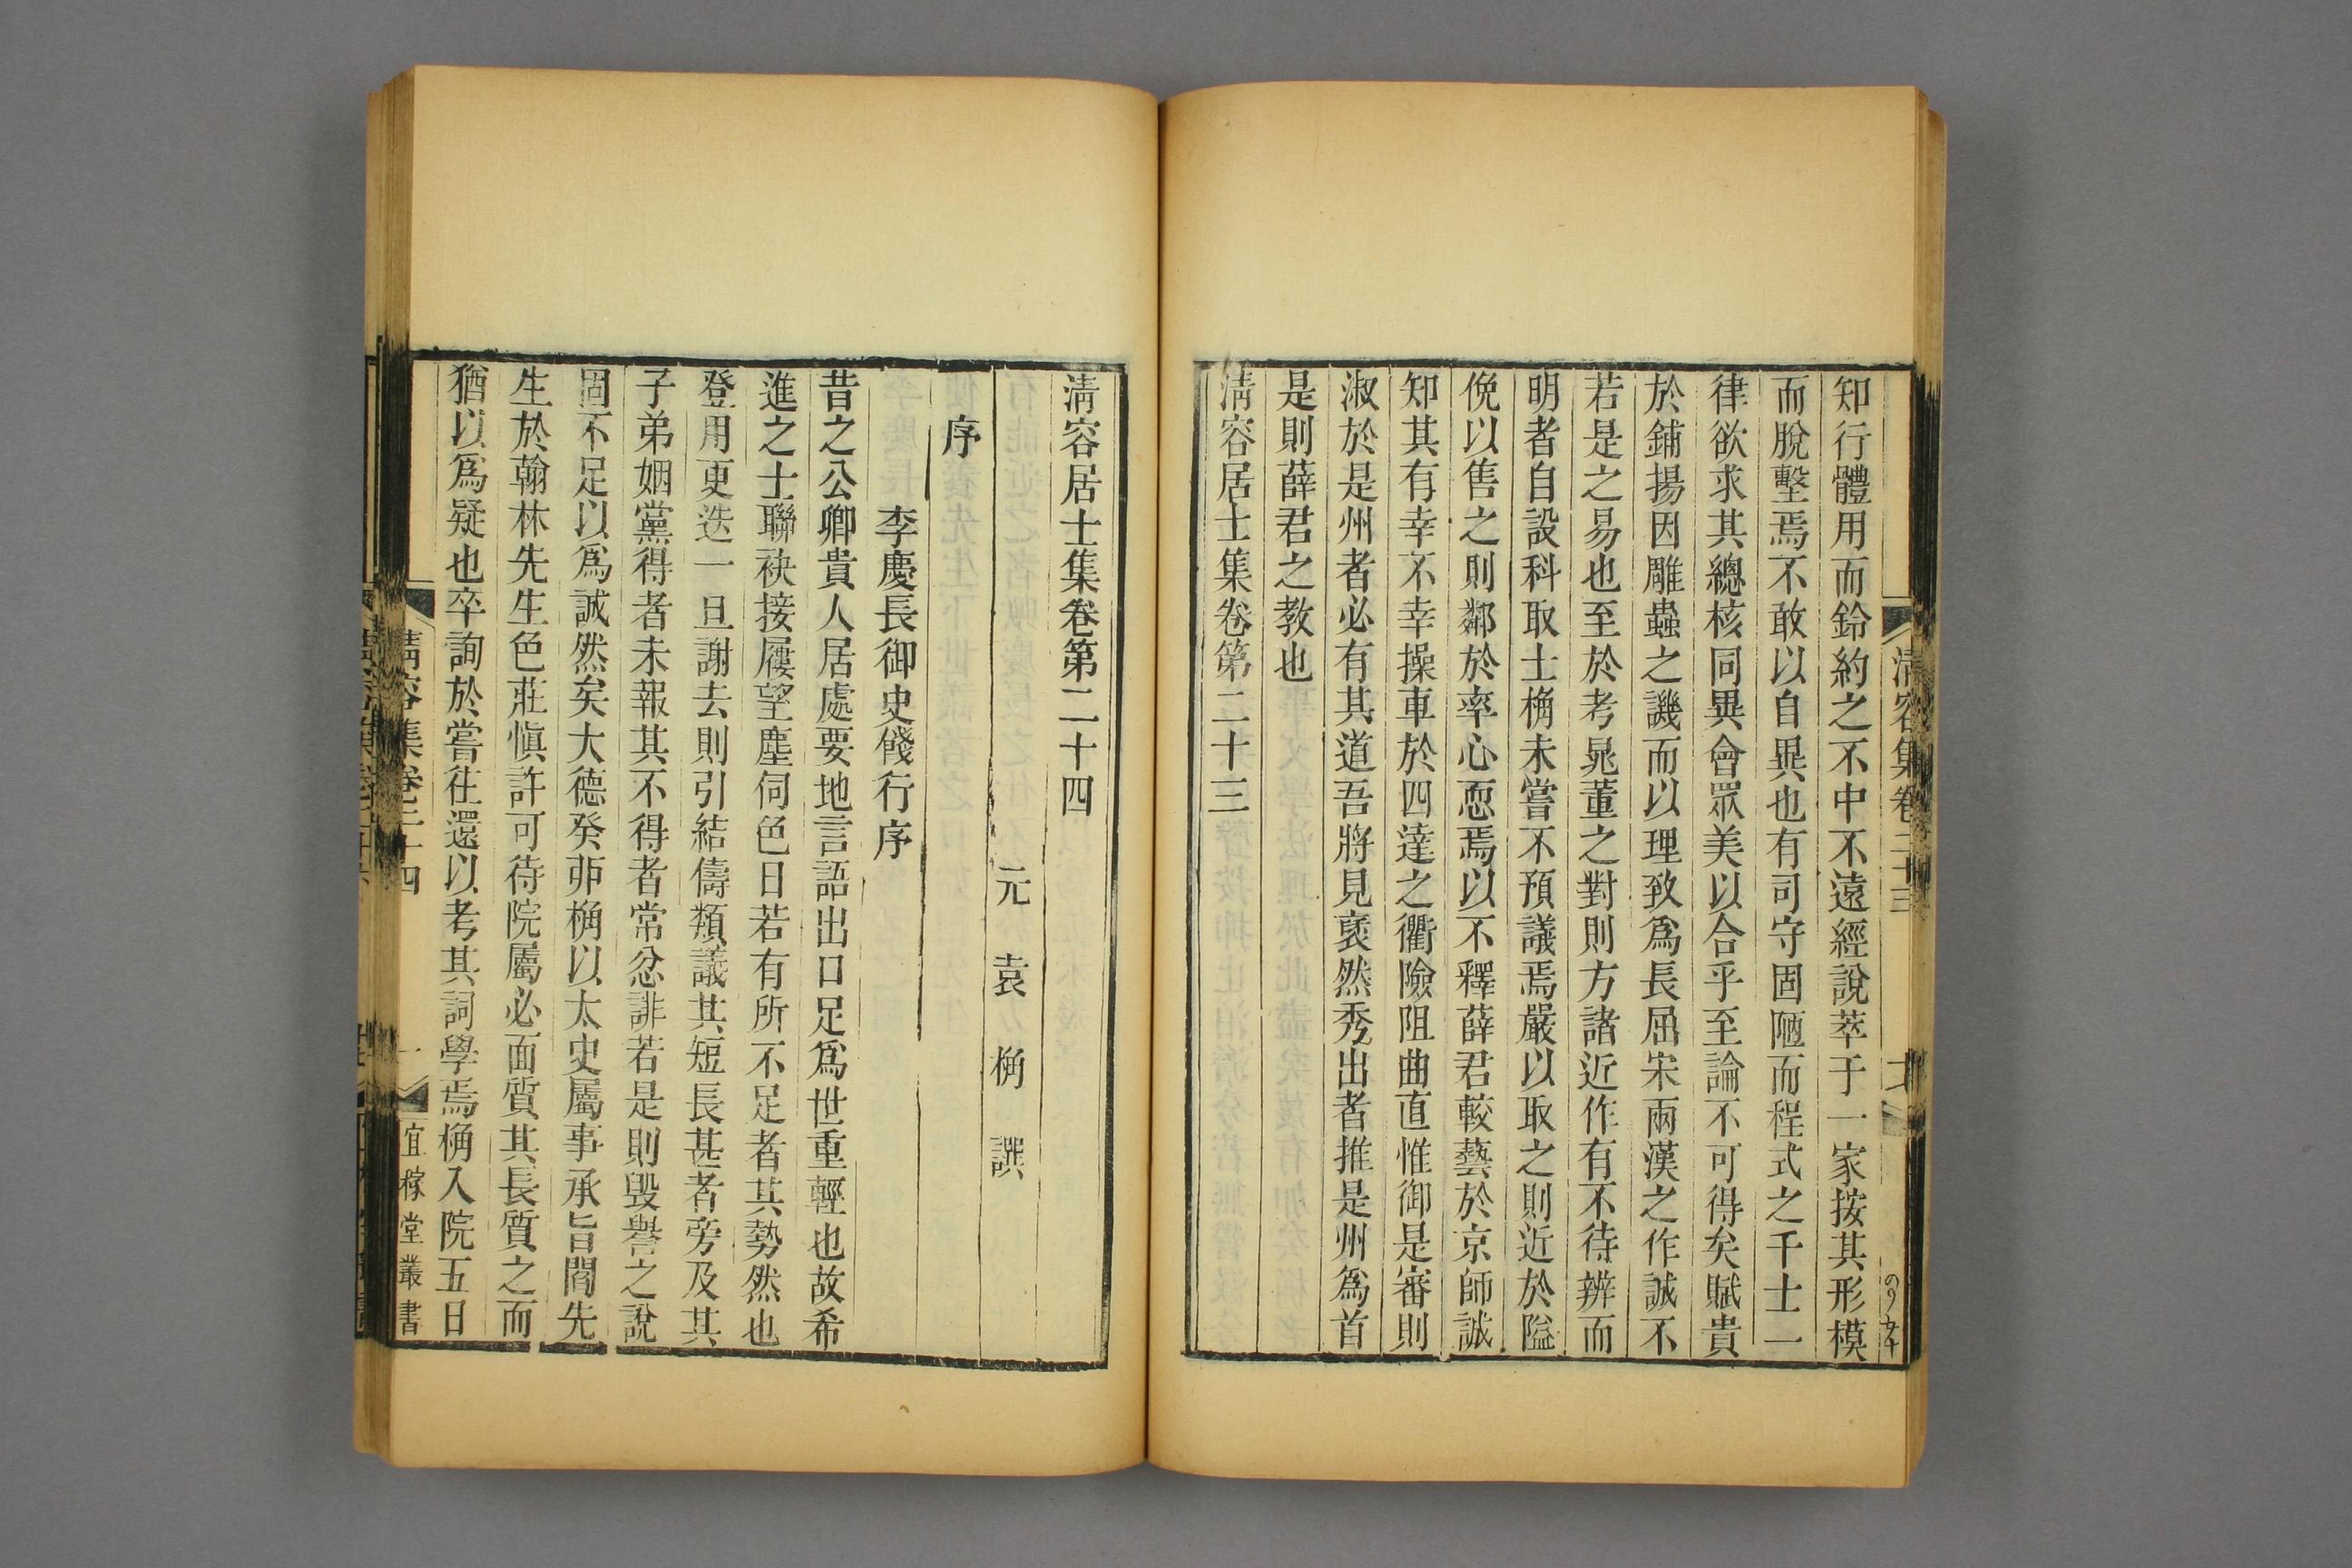 知行體用而鈴約之不中不遠經說萃于一家按其形模
而脫墼焉不敢以自異也有司守固陋而程式之千士一
律欲求其總核同異會眾美以合乎至論不可得矣賦貴
於鋪揚因雕蟲之譏而以理致爲長屈宋兩漢之作誠不
若是之易也至於考晁董之對則方諸近作有不待辨而
明者自設科取士桷未嘗不預議焉嚴以取之則近於隘
俛以售之則鄰於率心恧焉以不釋薛君較藝於京師誠
知其有幸不幸操車於四達之衢險阻曲直惟御是審則
淑於是州者必有其道吾將見裒然秀出者推是州爲首
是則薛君之教也
淸容居士集卷第二十三
清容集卷二十三
淸容居士集卷第二十四
元袁桷譔
序
李慶長御史餞行序
昔之公卿貴人居處要地言語出口足爲世重輕也故希
進之士聯袂接屨望塵伺色日若有所不足者其勢然也
登用更迭一旦謝去則引結儔類議其短長甚者旁及其
子弟姻黨得者未報其不得者常忿誹若是則毀譽之說
固不足以爲誠然矣大德癸卯桷以太史屬事承旨閻先
生於翰林先生色莊愼許可待院屬必面質其長質之而
猶以爲疑也卒詢於嘗往還以考其詞學焉桷入院五日
清容集卷二十四
一
宜稼堂叢書